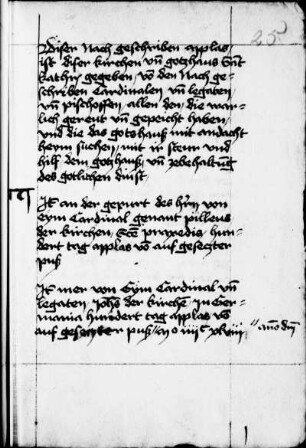 25
Diser nach geschriben applas
ist diser kirchen vn gotzhaus sant
kathrn gegeben vo den nach ge-
schriben Cardinalen vn legaten
vn pischoffen allen den die war-
lich gerent vn gepeicht haben
vnd die das gotzhaus mit andacht
heym suchen mit ir stewr vnd
hilf dem gotzhaus vn zebehaltug
des gotlichen dinst
It an der gepurt des hrn von
eym Cardinal genant pilleus
der kirchen Sce praxedis hun-
dert tag applas vo auf gesetzter
pus
It mer von Eym Cardinal vn
legaten Johes der kirche in Ger-
mania hundert tag applas vo
auf gesetzter pus ano dm